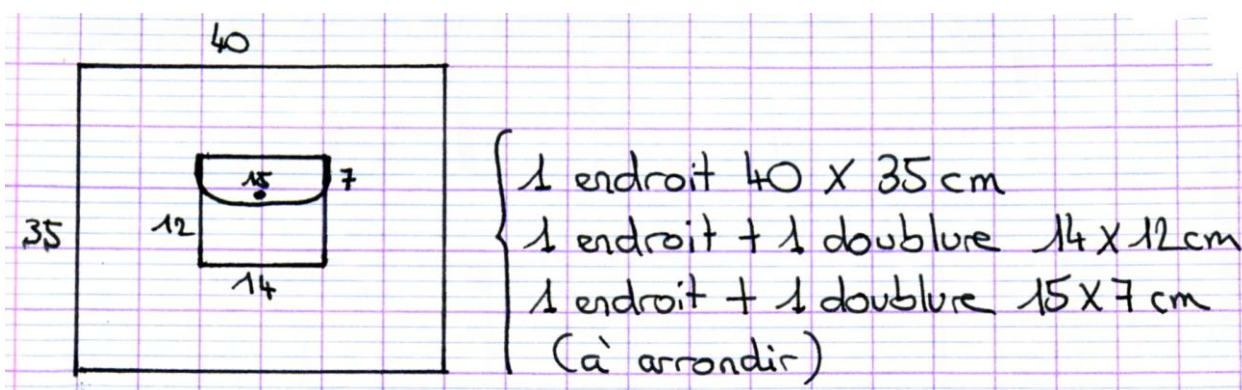 40
15 7
35 12
14
1 endroit 40 X 35 cm
1 endroit + 1 doublure 14 X 12 cm
1 endroit + 1 doublure 15 X 7 cm
(à arrondir)